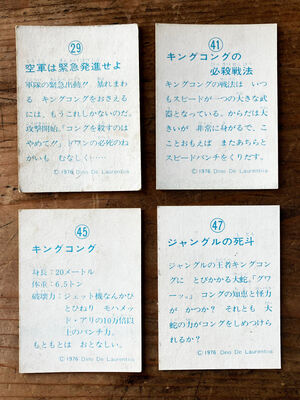 29
空軍は緊急発進せよ
軍隊の緊急出動!! 暴れまわ
る キングコングをおさえる
には、もうこれしかないのだ。
攻撃開始。「コングを殺すのは
やめて!!」ドワンの必死のね
がいも むなしく……
©1976 Dino De Laurentiis
41
キングコングの
必殺戦法
キングコングの戦法は いつ
もスピードが一つの大きな武
器となっている。からだは大
きいが 非常に身がるで、こ
こ とおもえば またあちらと
スピードパンチをくりだす。
©1976 Dino De Laurentiis
45
キングコング
身長：20メートル
体重：6.5トン
破壊力：ジェット機なんかひ
とひねり モハメッ
ド・アリの10万倍以
上のパンチ力。
もともとは おとなしい。
©1976 Dino De Laurentiis
47
ジャングルの死斗
ジャングルの王者キングコン
グに とびかかる大蛇。「グワ
ーッ」。コングの知恵と怪力
が かつか? それとも 大
蛇の力がコングをしめつけら
れるか?
©1976 Dino De Laurentiis